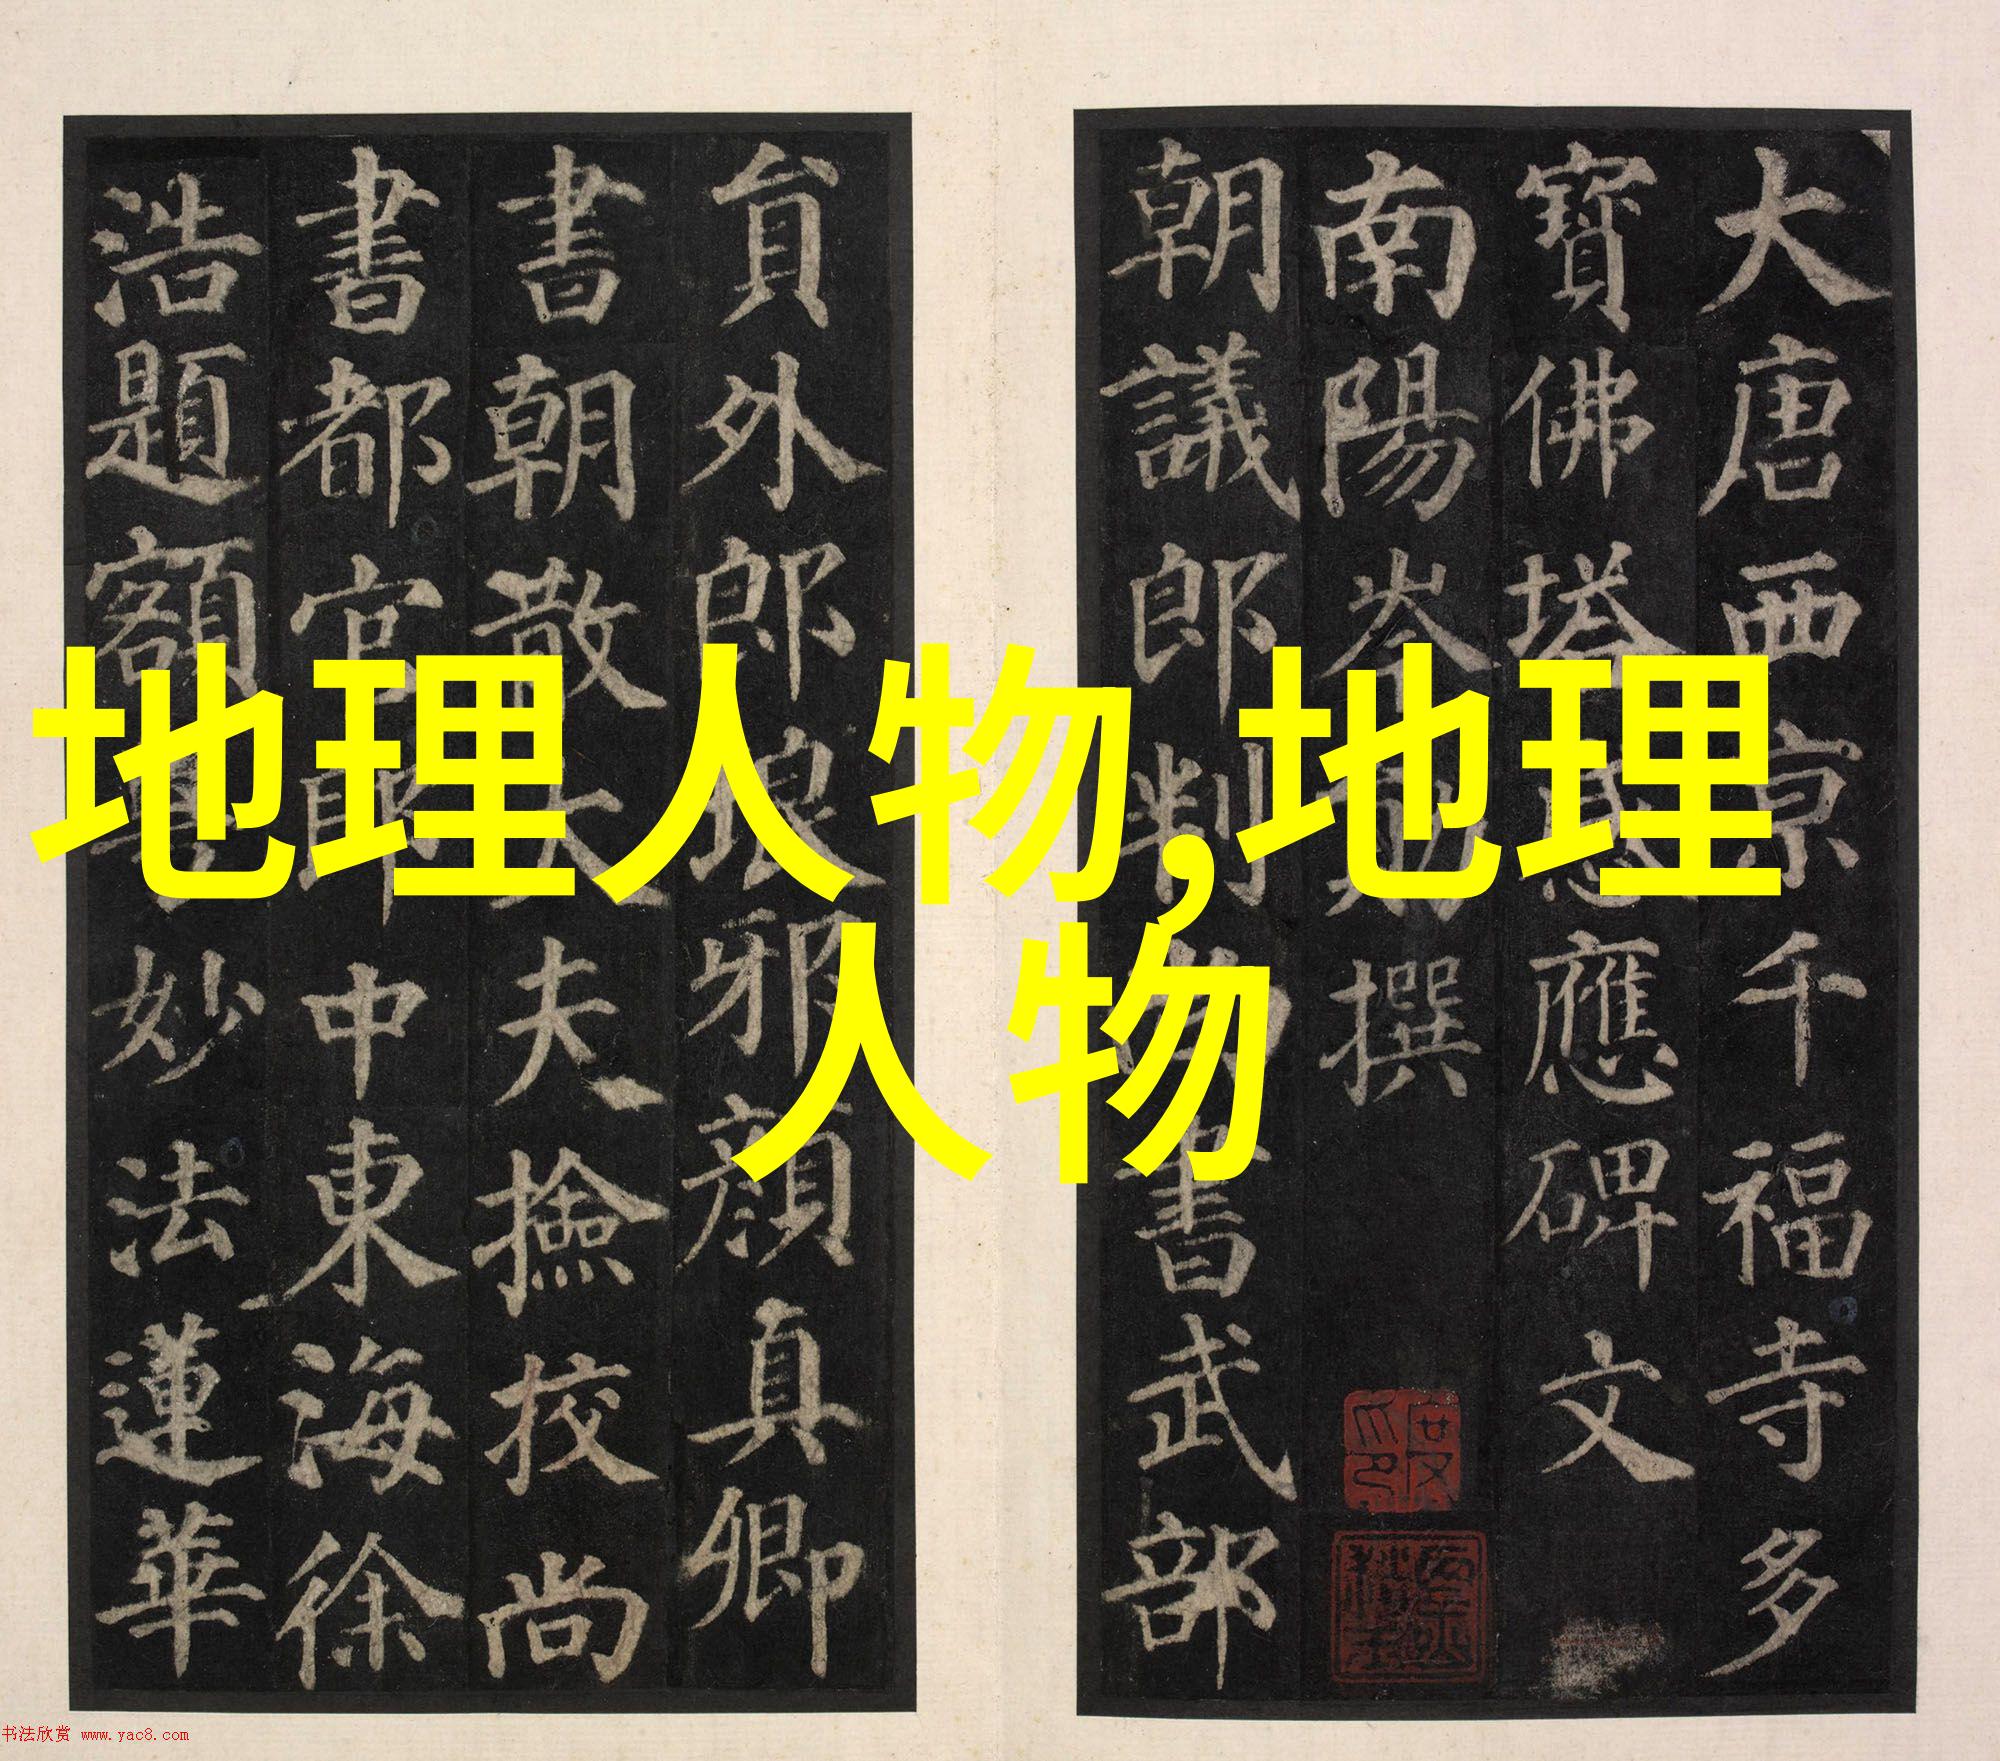 大唐西京千福寺多
寶佛塔感應碑文
南陽岑勛撰
朝議郎判尚書武部
員外郎琅邪顏真卿
書朝散大夫撿挍尚
書都官郎中東海徐
浩題額粤妙法蓮華
地理人物,地理
人物
书法欣赏 www.yac8.com